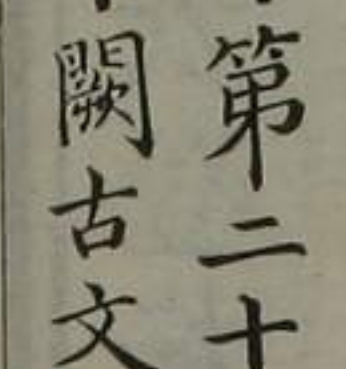 第二十
闕古文